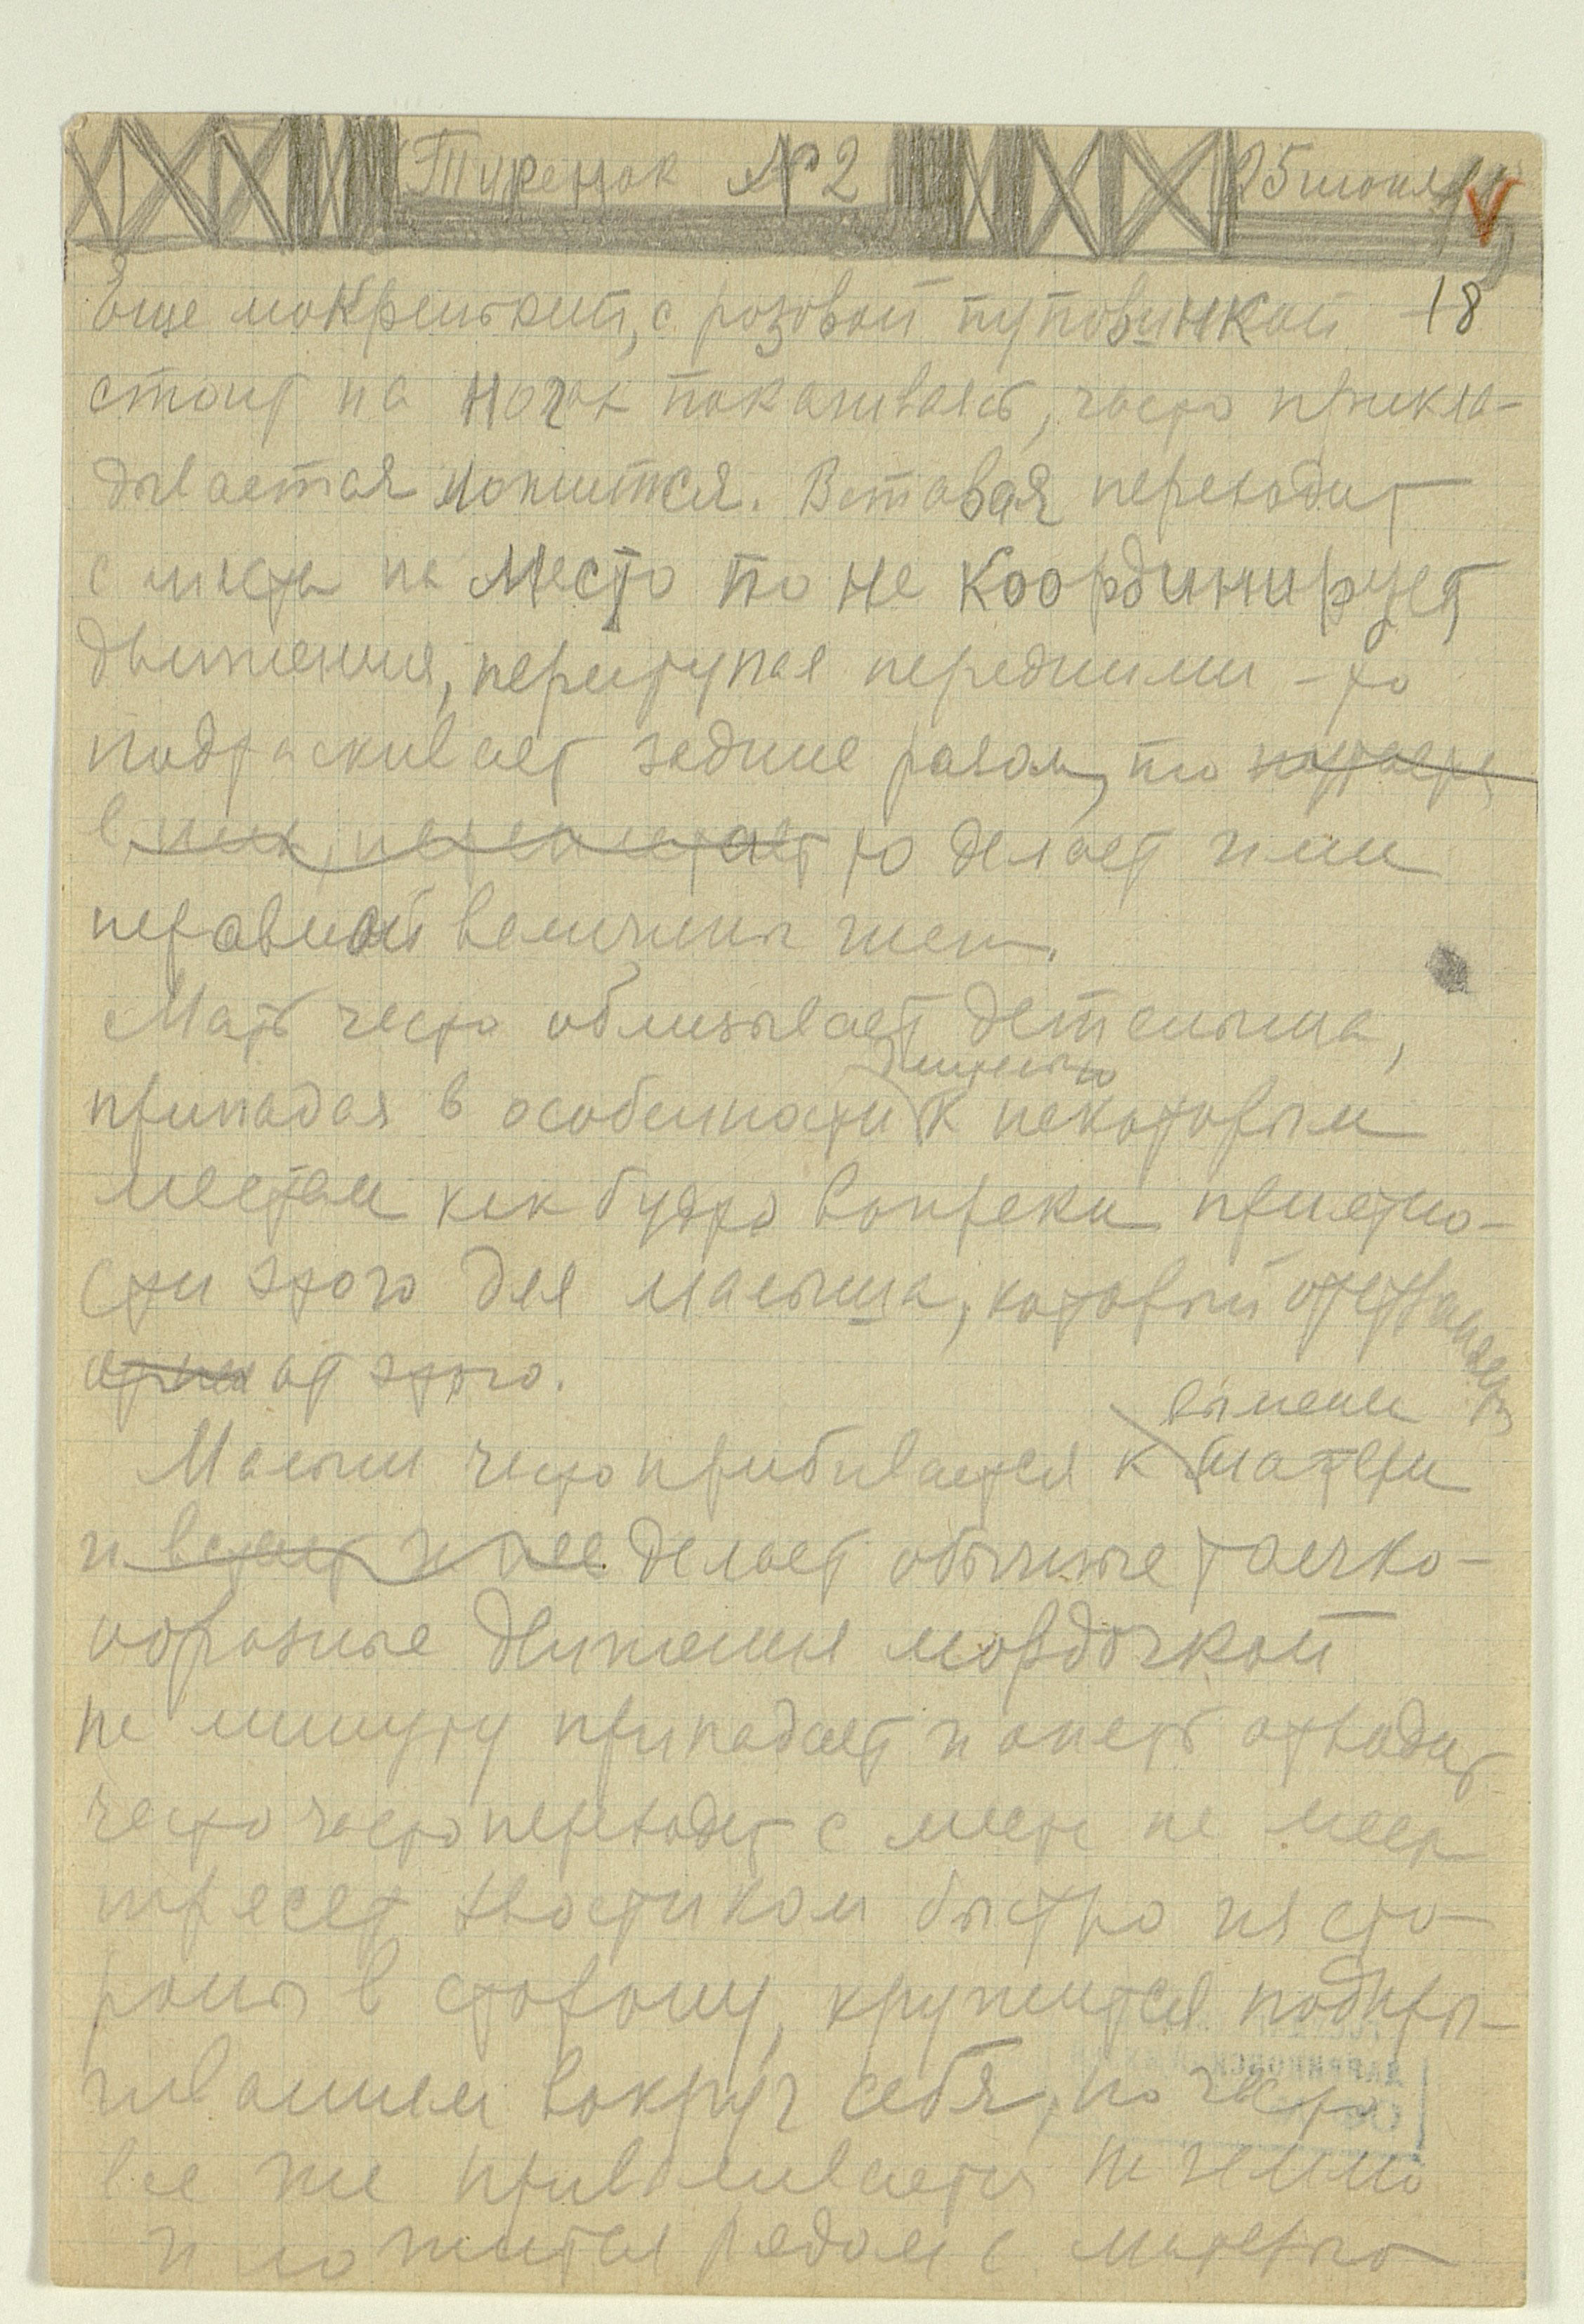 Туренок № 2 25 июня
18
Еще мокренький, с розовой пуповинкой
стоит на ногах покачиваясь, часто прикла-
дывается ложится. Вставая переходит
с места на место но не координирует
движения, переступая передними - то
подтаскивает задние разом, то
в них то делает ими
неравной величины шаги.
Мать часто облизывает детеныша,
припадая в особенности к некоторым
местам как будто вопреки приятно-
сти этого для малыша, который
от этого.
вымени
Малыш часто прибивается к матери
и делает обычные толчко-
образные движения мордочкой
на минуту припадает и опять отходит
часто часто переходит с места на место
трясет хвостиком быстро из сто-
роны в сторону, кружится подпры-
гиванием вокруг себя, но часто
все же приваливается на землю
и ложится рядом с матерью